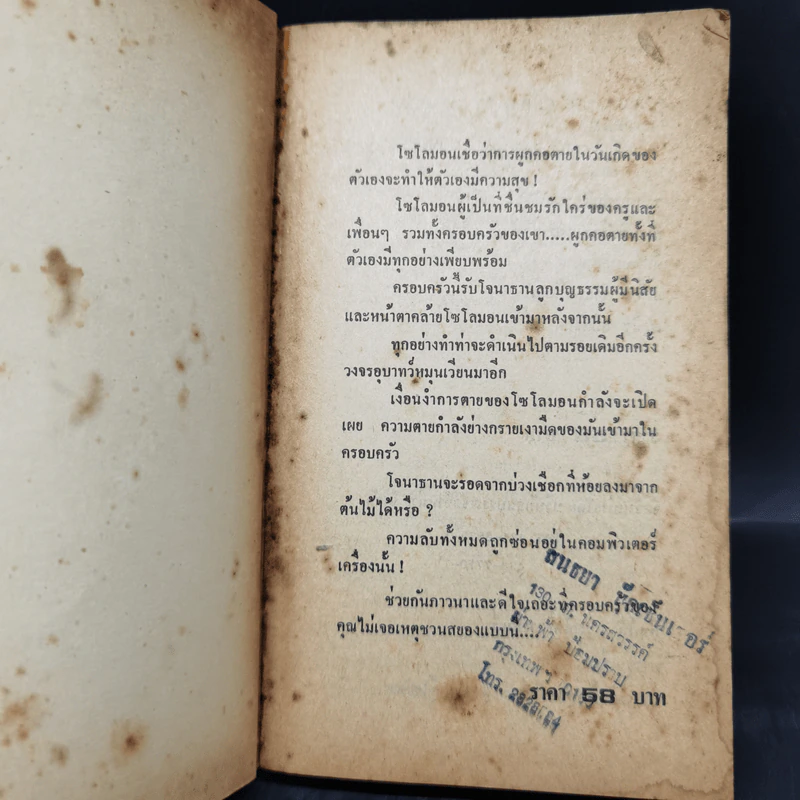 โซโลมอนเชื่อว่าการผูกคอตายในวันเกิดของ
ตัวเองจะทำให้ตัวเองมีความสุข !
โซโลมอนผู้เป็นที่ชื่นชมรักใคร่ของครูและ
เพื่อนๆ รวมทั้งครอบครัวของเขา.....ผูกคอตายทั้งที่
ตัวเองมีทุกอย่างเพียบพร้อม
ครอบครัวนี้รับโจนาธานลูกบุญธรรมผู้มีนิสัย
และหน้าตาคล้ายโซโลมอนเข้ามาหลังจากนั้น
ทุกอย่างทำท่าจะดำเนินไปตามรอยเดิมอีกครั้ง
วงจรอุบาทว์หมุนเวียนมาอีก
เงื่อนงำการตายของโซโลมอนกำลังจะเปิด
เผย ความตายกำลังย่างกรายเงามืดของมันเข้ามาใน
ครอบครัว
โจนาธานจะรอดจากบ่วงเชือกที่ห้อยลงมาจาก
ต้นไม้ได้หรือ ?
ความลับทั้งหมดถูกซ่อนอยู่ในคอมพิวเตอร์
เครื่องนั้น !
ช่วยกันภาวนาและดีใจเถอะที่ครอบครัวของ
คุณไม่เจอเหตุชวนสยองแบบนี้....
สนธยา
130 ถ. นครสวรรค์
ป้อมปราบ
กรุงเทพ ฯ
โทร.
ราคา 58 บาท